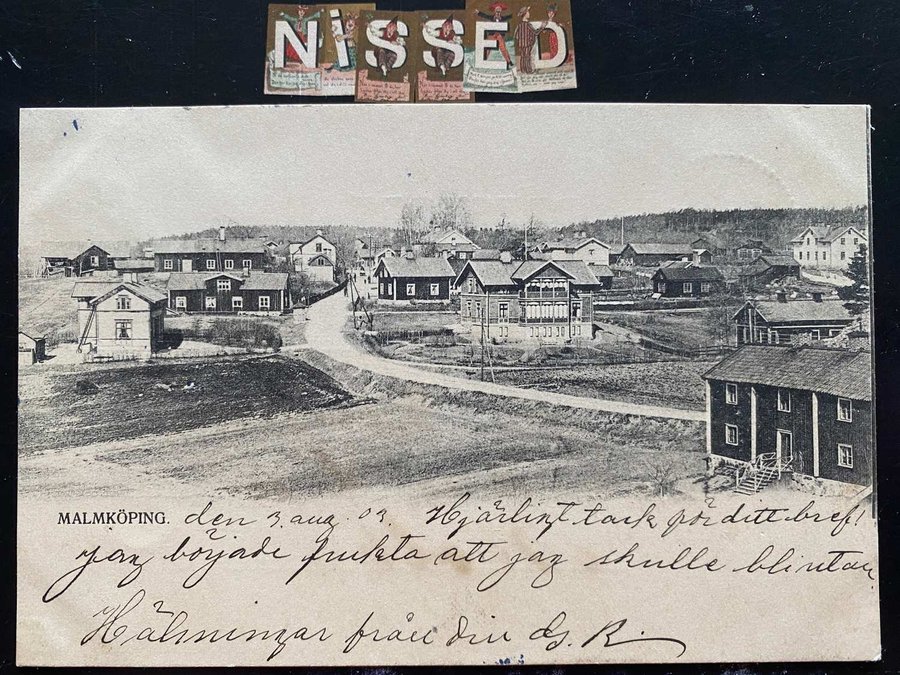 NISSED
MALMKÖPING. den 3 aug. 03. Hjärligt tack för ditt bref!
jag började frukta att jag skulle bli utan.
Hälsningar från din G. R.